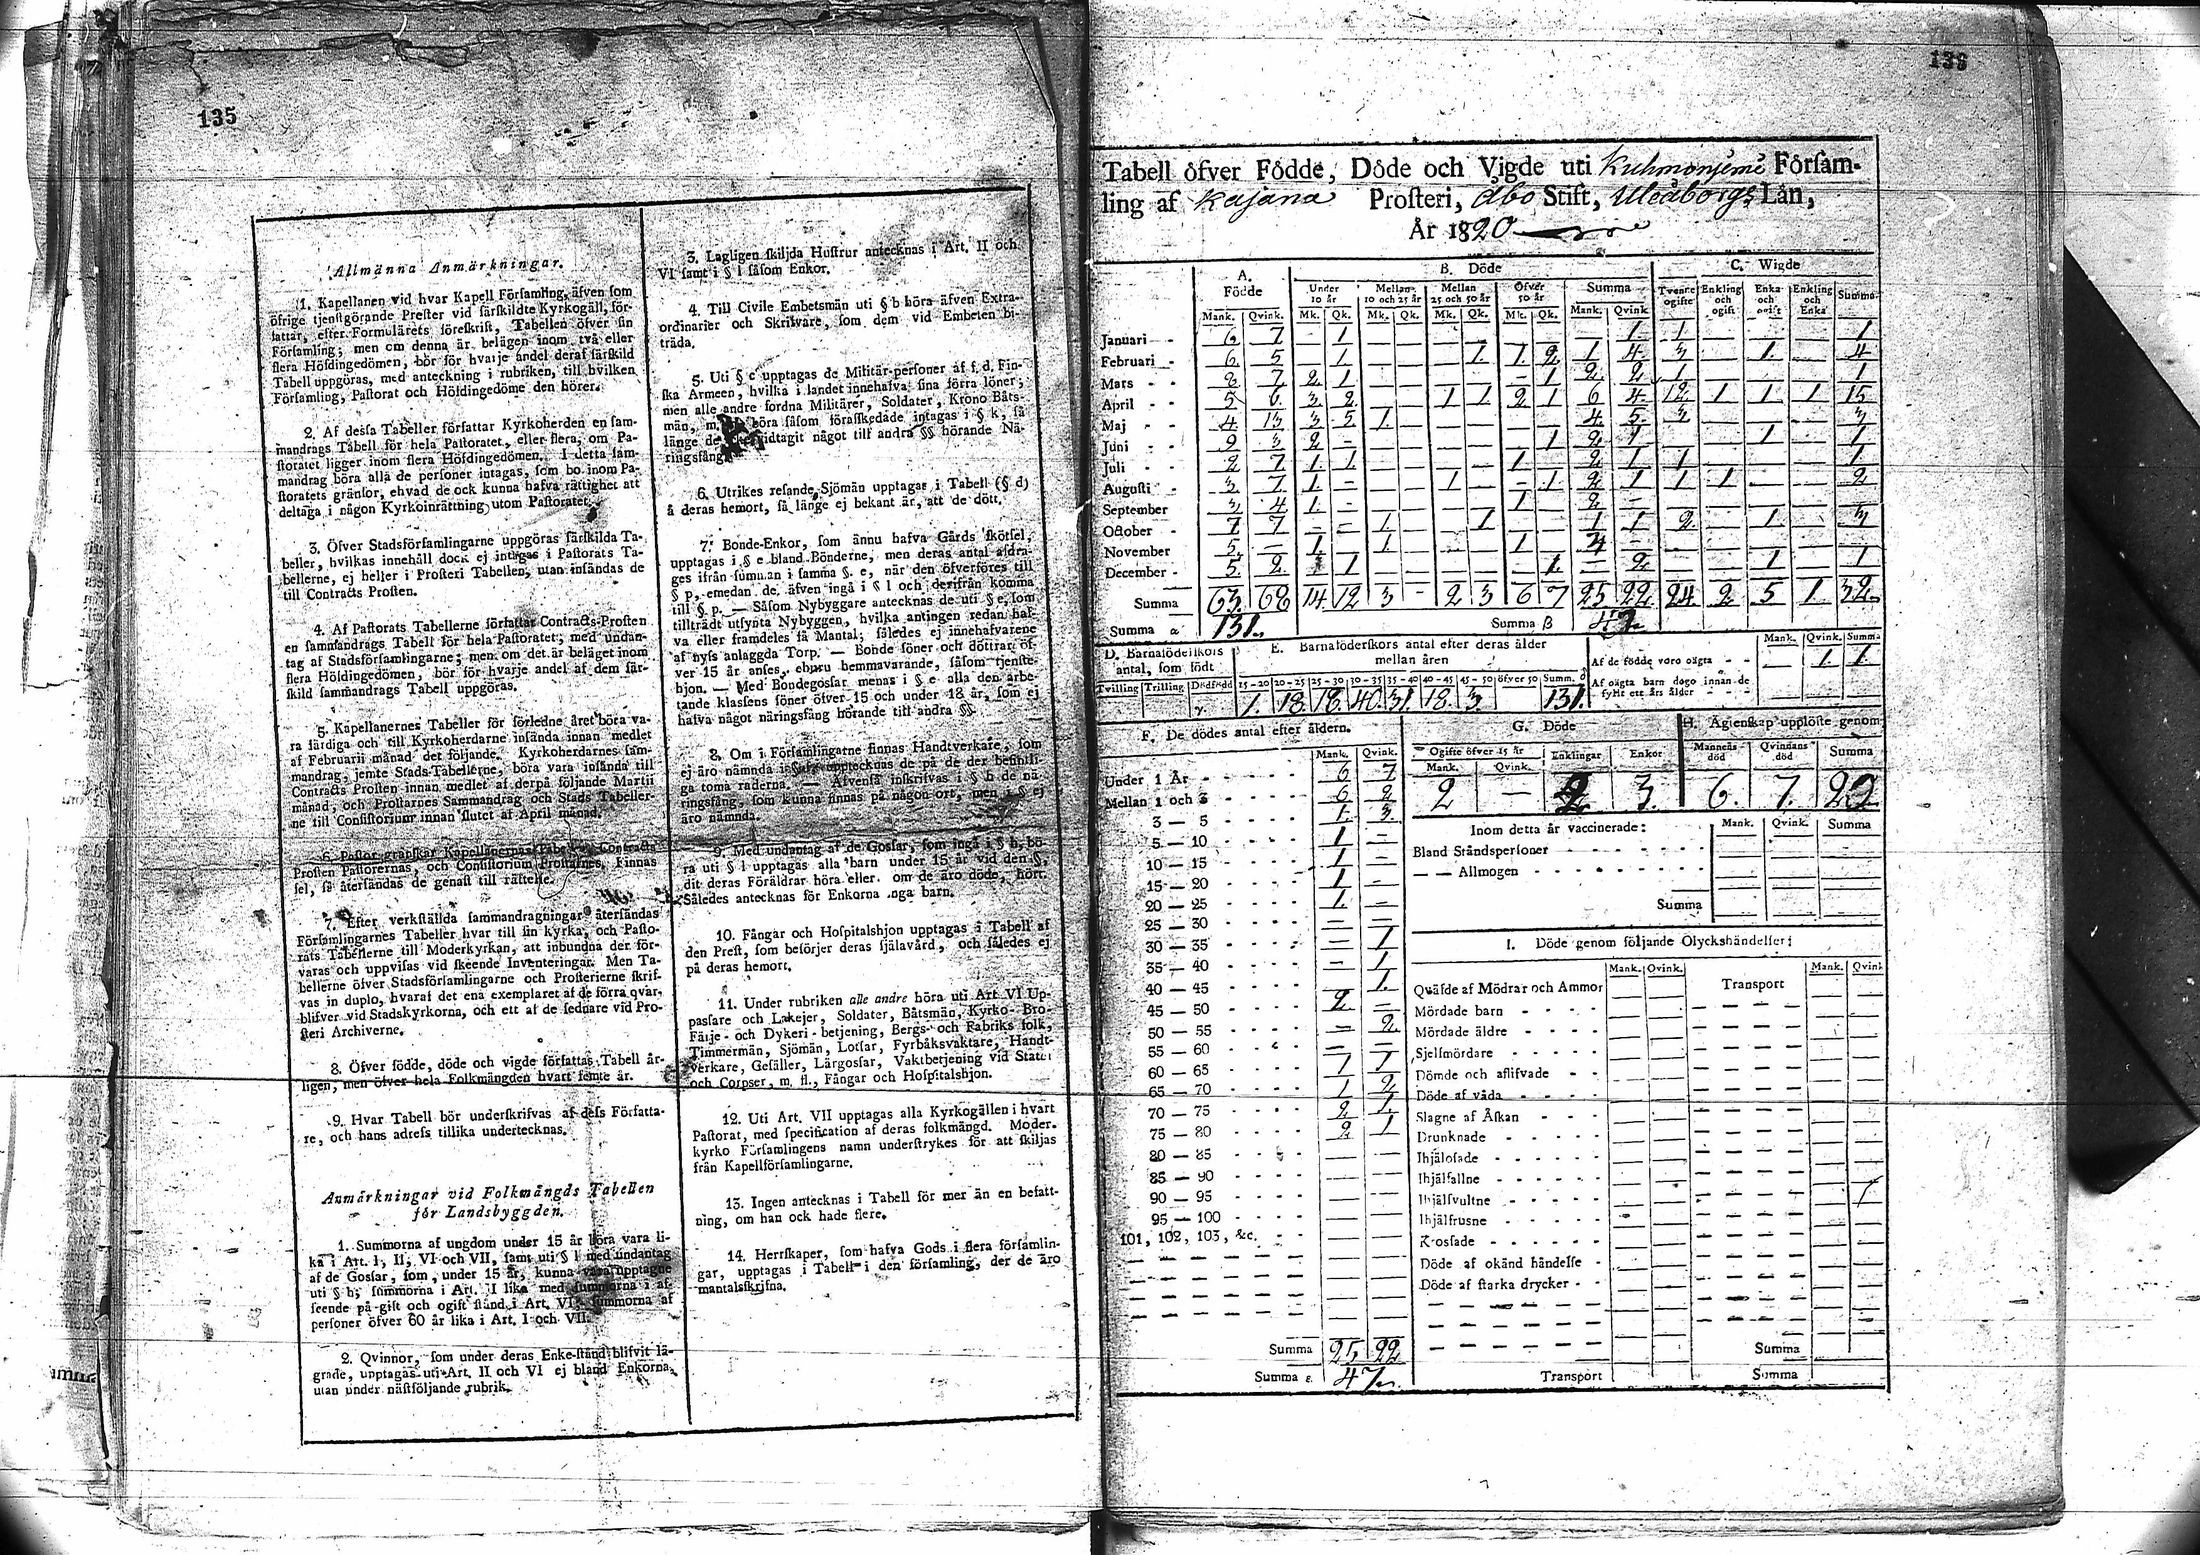 135
Allmänna Anmärkningar.
1. Kapellanen vid hvar Kapell Församling, äfven som
öfrige tjenstgörande Prester vid särskildte Kyrkogäll, för-
fattar, efter Formulärets föreskrift, Tabellen öfver sin
Församling; men om denna är belägen inom två eller
flera Höfdingedömen, bör för hvarje andel deraf särskild
Tabell uppgöras, med anteckning i rubriken, till hvilken
Församling, Pastorat och Höfdingedöme den hörer.
2. Af dessa Tabeller författar Kyrkoherden en sam-
mandrags Tabell för hela Pastoratet, eller flera, om Pa-
storatet ligger inom flera Höfdingedömen. I detta sam-
mandrag böra alla de personer intagas, som bo inom Pa-
storatets gränsor, ehvad de ock kunna hafva rättighet att
deltaga i någon Kyrkoinrättning utom Pastoratet.
3. Öfver Stadsförsamlingarne uppgöras särskilda Ta-
beller, hvilkas innehåll dock ej intagas i Pastorats Ta-
bellerne, ej heller i Prosteri Tabellen, utan insändas de
till Contracts Prosten.
4. Af Pastorats Tabellerne författar Contracts-Prosten
en sammandrags Tabell för hela Pastoratet; med undan-
tag af Stadsförsamlingarne; men om det är beläget inom
flera Höfdingedömen, bör för hvarje andel af dem sär-
skild sammandrags Tabell uppgöras.
5. Kapellanernes Tabeller för förledne året böra va-
ra färdiga och till Kyrkoherdarne insända innan medlet
af Februarii månad det följande. Kyrkoherdarnes sam-
mandrag, jemte Stads-Tabellerne, böra vara insända till
Contracts Prosten innan medlet af derpå följande Martii
månad, och Prostarnes Sammandrag och Stads Tabeller-
ne till Consistorium innan slutet af April månad.
6. Pastor granskar Kapellanernas Contracts
Prosten Pastorernas, och Consistorium Prostarnes. Finnas
fel, så återsändas de genast till rättelse.
7. Efter verkställda sammandragningar återsändas
Församlingarnes Tabeller hvar till sin kyrka, och Pasto-
rats Tabellerne till Moderkyrkan, att inbundna der för-
varas och uppvisas vid skeende Inventeringar. Men Ta-
bellerne öfver Stadsförsamlingarne och Prosterierne skrif-
vas in duplo, hvaraf det ena exemplaret af de förra qvar-
blifver vid Stadskyrkorna, och ett af de sednare vid Pro-
steri Archiverne.
8. Öfver födde, döde och vigde författas Tabell år-
ligen, men öfver hela Folkmängden hvart femte år.
9. Hvar Tabell bör underskrifvas af dess Författa-
re, och hans adress tillika undertecknas.
Anmärkningar vid Folkmängds Tabellen
för Landsbyggden.
1. Summorna af ungdom under 15 år böra vara li-
ka i Art. I, II, VI och VII, samt uti § l med undantag
af de Gossar, som, under 15 år, kunna vara upptagne
uti § h; summorna i Art. II lika med summorna i af-
seende på gift och ogift stånd i Art. VI; summorna af
personer öfver 60 år lika i Art. I och VII.
2. Qvinnor, som under deras Enke-stånd blifvit lä-
grade, upptagas uti Art. II och VI ej bland Enkorna,
utan under nästföljande rubrik.
3. Lagligen skiljda Hustrur antecknas i Art. II och
VI samt i § l såsom Enkor.
4. Till Civile Embetsmän uti § b höra äfven Extra-
ordinarier och Skrifvare, som dem vid Embeten bi-
träda.
5. Uti § c upptagas de Militär-personer af f. d. Fin-
ska Armeen, hvilka i landet innehafva sina förra löner;
men alle andre fordna Militärer, Soldater, Krono Båts-
män, m. böra såsom förafskedade intagas i § k, så
länge de vidtagit något till andra §§ hörande Nä-
ringsfång.
6. Utrikes resande Sjömän upptagas i Tabell (§ d)
å deras hemort, så länge ej bekant är, att de dött.
7. Bonde-Enkor, som ännu hafva Gårds skötsel,
upptagas i § e bland Bönderne, men deras antal afdra-
ges ifrån summan i samma §. e, när den öfverföres till
§ p, emedan de äfven ingå i § l och derifrån komma
till § p. — Såsom Nybyggare antecknas de uti § e, som
tillträdt utsynta Nybyggen, hvilka antingen redan haf-
va eller framdeles få Mantal; således ej innehafvarene
af nyss anlaggda Torp. — Bonde söner och döttrar öf-
ver 15 år anses, ehuru hemmavarande, såsom tjenste-
hjon. — Med Bondegossar menas i § e alla den arbe-
tande klassens söner öfver 15 och under 18 år, som ej
hafva något näringsfång hörande till andra §§.
8. Om i Församlingarne finnas Handtverkare, som
ej äro nämnda i upptecknas de på de der befintli-
ga toma raderna. — Äfvenså inskrifvas i § h de nä-
ringsfång, som kunna finnas på någon ort, men i § ej
äro nämnda.
9. Med undantag af de Gossar, som ingå i § h, bö-
ra uti § l upptagas alla barn under 15 år vid den §,
dit deras Föräldrar höra eller, om de äro döde, hört.
Således antecknas för Enkorna inga barn.
10. Fångar och Hospitalshjon upptagas i Tabell af
den Prest, som besörjer deras själavård, och således ej
på deras hemort.
11. Under rubriken alle andre höra uti Art. VI Up-
passare och Lakejer, Soldater, Båtsmän, Kyrko- Bro-
Färje- och Dykeri-betjening, Bergs- och Fabriks folk,
Timmermän, Sjömän, Lotsar, Fyrbåksvaktare, Handt-
verkare, Gesäller, Lärgossar, Vaktbetjening vid Stater
och Corpser, m. fl., Fångar och Hospitalshjon.
12. Uti Art. VII upptagas alla Kyrkogällen i hvart
Pastorat, med specification af deras folkmängd. Moder-
kyrko Församlingens namn understrykes för att skiljas
från Kapellförsamlingarne.
13. Ingen antecknas i Tabell för mer än en befatt-
ning, om han ock hade flere.
14. Herrskaper, som hafva Gods i flera församlin-
gar, upptagas i Tabell i den församling, der de äro
mantalsskrifna.
136
Tabell öfver Födde, Döde och Vigde uti Kuhmoniemi Församling
ling af Kajana Prosteri, Åbo Stift, Uleåborgs Län,
År 1820
A. Födde B. Döde C. Wigde
Under 10 år Mellan 10 och 25 år Mellan 25 och 50 år Öfver 50 år Summa Tvenne ogifte Enkling och ogift Enka och ogift Enkling och Enka Summa
Mank. Qvink. Mk. Qk. Mk. Qk. Mk. Qk. Mk. Qk. Mank. Qvink
Januari - 6 7 — 1 — — — — — — — 1 1 — — — 1
Februari - 6 5 — 1 — — — 1 1 2 1 4 3 — 1 — 4
Mars - - 8 7 2 1 — — — — — 1 2 2 1 — — — 1
April - - 5 6 3 2 — — 1 1 2 1 6 4 12 1 1 1 15
Maj - - 4 13 3 5 1 — — — — — 4 5 3 — — — 3
Juni - - 9 3 2 — — — — — — 1 2 1 — — 1 — 1
Juli - - 2 7 1 1 — — — — 1 — 2 1 1 — — — 1
Augusti - 3 7 1 — — — 1 — — 1 2 1 1 1 — — 2
September 3 4 1 — — — — — 1 — 2 —
October - 7 7 — — 1 — — 1 — — 1 1 2 — 1 — 3
November 5 — 1 — 1 — — — 1 —
December - 5 2 1 — — — — — 1 — 2 — — 1 — 1
Summa 63 68 14 12 3 - 2 3 6 7 25 22 24 2 5 1 32
Summa α 131 Summa β 47
D. Barnsföderskors antal, som födt E. Barnaföderskors antal efter deras ålder mellan åren Mank. Qvink. Summa
Af de födde voro oägta - - — 1 1
Af oägta barn dogo innan de fyllt ett års ålder - - - — — —
Tvilling Trilling Dödfödd 15-20 20-25 25-30 30-35 35-40 40-45 45-50 öfver 50 Summ. δ
1 18 18 40 31 18 3 131
F. De dödes antal efter åldern.
Mank. Qvink.
Under 1 År - - - - 6 7
Mellan 1 och 3 - - - - 6 2
3 — 5 - - - - 1 3
5 — 10 - - - - 1 —
10 — 15 - - - - 1 —
15 — 20 - - - - 1 —
20 — 25 - - - - 1 —
25 — 30 - - - - — —
30 — 35 - - - - — 1
35 — 40 - - - - — 1
40 — 45 - - - - — 1
45 — 50 - - - - 2 —
50 — 55 - - - - — 2
55 — 60 - - - - — —
60 — 65 - - - - 1 1
65 — 70 - - - - 1 2
70 — 75 - - - - 2 1
75 — 80 - - - - 2 1
80 — 85 - - - - — —
85 — 90 - - - - — —
90 — 95 - - - - — —
95 — 100 - - - - — —
101, 102, 103, &c. - - — —
Summa 25 22
Summa ε. 47
G. Döde H. Ägtenskap upplöste genom
Ogifte öfver 15 år Enklingar Enkor Mannens död Qvinnans död Summa
Mank. Qvink.
2 — 2 3 6 7
Inom detta år vaccinerade: Mank. Qvink. Summa
Bland Ståndspersoner - - - - - -
— — Allmogen - - - - - - - -
Summa
I. Döde genom följande Olyckshändelser:
Mank. Qvink. Mank. Qvink
Qväfde af Mödrar och Ammor Transport
Mördade barn - - - -
Mördade äldre - - - -
Sjelfmördare - - - - -
Dömde och aflifvade - -
Döde af våda - - - -
Slagne af Åskan - - -
Drunknade - - - - -
Ihjälosade - - - - -
Ihjälfallne - - - - -
Ihjälsvultne - - - - -
Ihjälfrusne - - - - -
Krossade - - - - -
Döde af okänd händelse -
Döde af starka drycker - -
Summa
Transport Summa